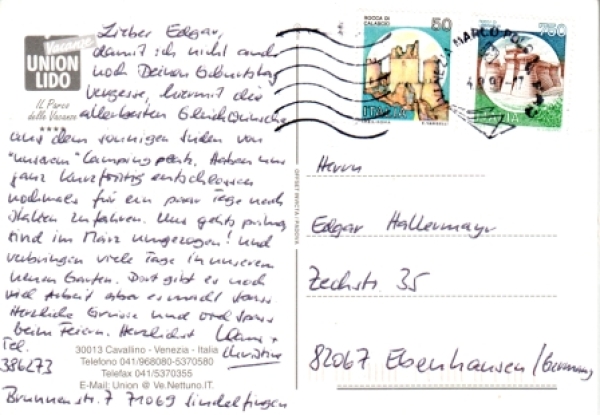 Lieber Edgar,
damit ich nicht auch
noch Deinen Geburtstag
vergesse, hiermit die
allerbesten Glückwünsche
aus dem sonnigen Süden von
"unserem" Campingplatz. Haben uns
ganz kurzfristig entschlossen
nochmals für ein paar Tage nach
Italien zu fahren. Uns gehts prima,
sind im März umgezogen! und
verbringen viele Tage in unserem
neuen Garten. Dort gibt es noch
viel Arbeit aber es macht Spass.
Herzliche Grüsse und viel Spass
beim Feiern. Herzlichst
Christine
Tel.
386273
Brunnenstr. 7 71069 Sindelfingen
Vacanze
UNION
LIDO
IL Parco
delle Vacanze
****
30013 Cavallino - Venezia - Italia
Telefono 041/968080-5370580
Telefax 041/5370355
E-Mail: Union @ Ve.Nettuno.IT.
ROCCA DI
CALASCIO
50
ITALIA
750
ITALIA
MARCO POLO
Herrn
Edgar Hallermayr
Zechstr. 35
82067 Ebenhausen / Germany